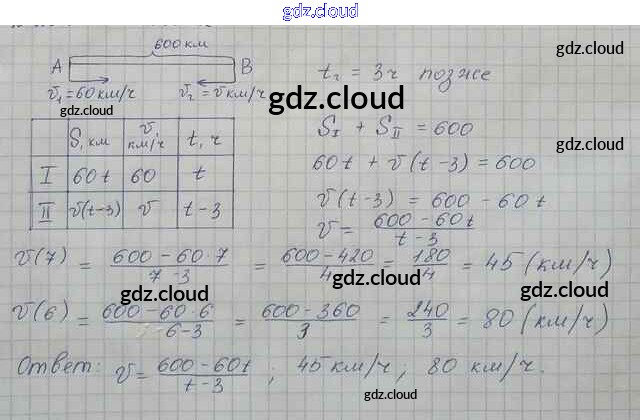 gdz.cloud
600 км
gdz.cloud
А В
v₁ = 60 км/ч v₂ = v км/ч
t₂ = 3ч позже
gdz.cloud
S, км v, км/ч t, ч
I 60t 60 t
II v(t-3) v t-3
S_I + S_II = 600
60t + v(t-3) = 600
gdz.cloud
gdz.cloud
v(t-3) = 600 - 60t
v = (600-60t)/(t-3)
v(7) = (600-60·7)/(7-3) = (600-420)/4 = 180/4 = 45 (км/ч)
gdz.cloud
gdz.cloud
v(6) = (600-60·6)/(6-3) = (600-360)/3 = 240/3 = 80 (км/ч)
gdz.cloud
Ответ: v = (600-60t)/(t-3) ; 45 км/ч; 80 км/ч.
gdz.cloud
gdz.cloud